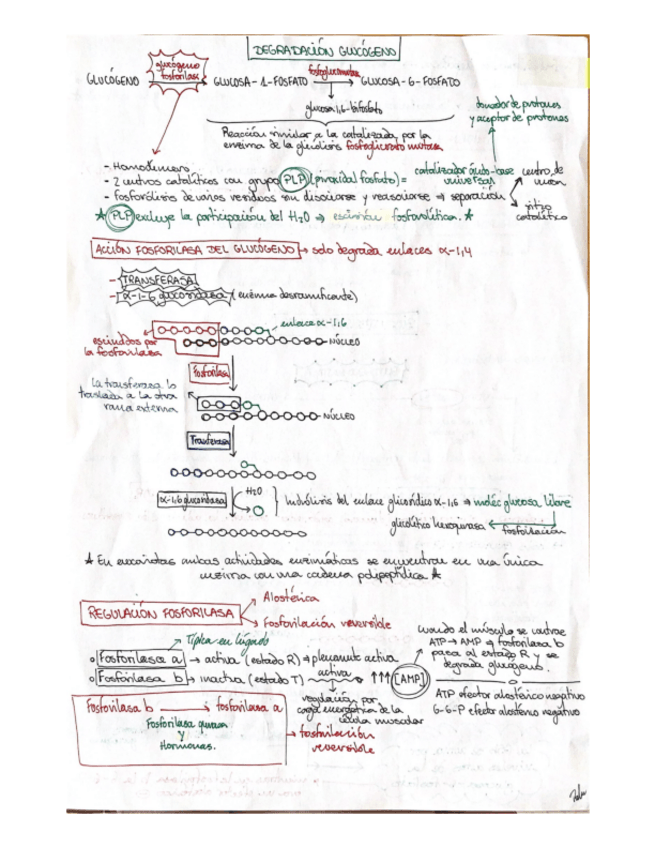 DEGRADACIÓN GLUCÓGENO
glucógeno fosforilasa
fosfoglucomutasa
GLUCÓGENO → GLUCOSA-1-FOSFATO → GLUCOSA-6-FOSFATO
glucosa 1,6-bifosfato
donador de protones
y aceptor de protones
Reacción similar a la catalizada por la
enzima de la glucólisis fosfoglicerato mutasa
- Homodímero
- 2 centros catalíticos con grupo PLP (piridoxal fosfato) = catalizador ácido-base universal
- Fosforólisis de varios residuos sin disociarse y reasociarse ⇒ separación
centro de unión
sitio catalítico
★ PLP excluye la participación del H2O ⇒ escisión fosforolítica. ★
ACCIÓN FOSFORILASA DEL GLUCÓGENO → solo degrada enlaces α-1,4
- TRANSFERASA
- α-1-6 glucosidasa (enzima desramificante)
enlace α-1,6
NÚCLEO
escindidos por
la fosforilasa
Fosforilasa
La transferasa lo
traslada a la otra
rama externa
NÚCLEO
Transferasa
α-1,6 glucosidasa
H2O
Hidrólisis del enlace glicosídico α-1,6 ⇒ moléc glucosa libre
glucolítico hexoquinasa ← fosforilación
★ En eucariotas ambas actividades enzimáticas se encuentran en una única
enzima con una cadena polipeptídica ★
REGULACIÓN FOSFORILASA
Alostérica
Fosforilación reversible
Típica en hígado
Fosforilasa a → activa (estado R) ⇒ plenamente activa
Fosforilasa b → inactiva (estado T) activa ↑↑↑ [AMP]
cuando el músculo se contrae
ATP → AMP ⇒ fosforilasa b
pasa al estado R y se
degrada glucógeno.
ATP efector alostérico negativo
G-6-P efector alostérico negativo
regulación por
carga energética de la
célula muscular
Fosforilasa b → fosforilasa a
Fosforilasa quinasa
y
Hormonas.
→ fosforilación
reversible